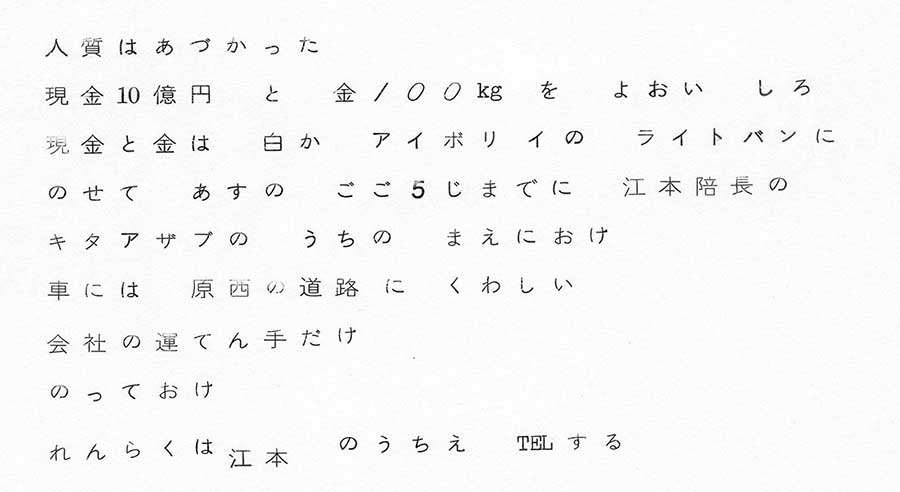 人質はあづかった
現金10億円 と 金/００kg を よおい しろ
現金と金は 白か アイボリイの ライトバンに
のせて あすの ごご5じまでに 江本陪長の
キタアザブの うちの まえにおけ
車には 原西の道路に くわしい
会社の運てん手だけ
のっておけ
れんらくは江本 のうちえ TELする